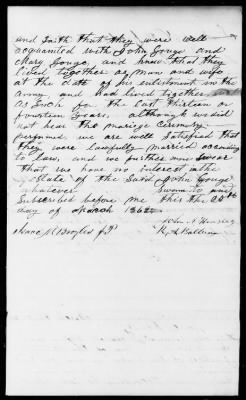 and saith that they were well
acquainted with John Gouge and
Mary Gouge, and knew that they
lived together as man and wife
at the date of his enlistment in the
army and had lived together
as such for the last thirteen or
fourteen years, although we did
not hear the marriage cerimony
performed we are well satisfied that
they were lawfully married according
to law, and we further more swear
that we have no interest in the
estate of the said John Gouge
whatever sworn to and
Subscribed before me this the 25th
day of March 1862
John A
Isaac M Broyles J.P. R A Baldwin